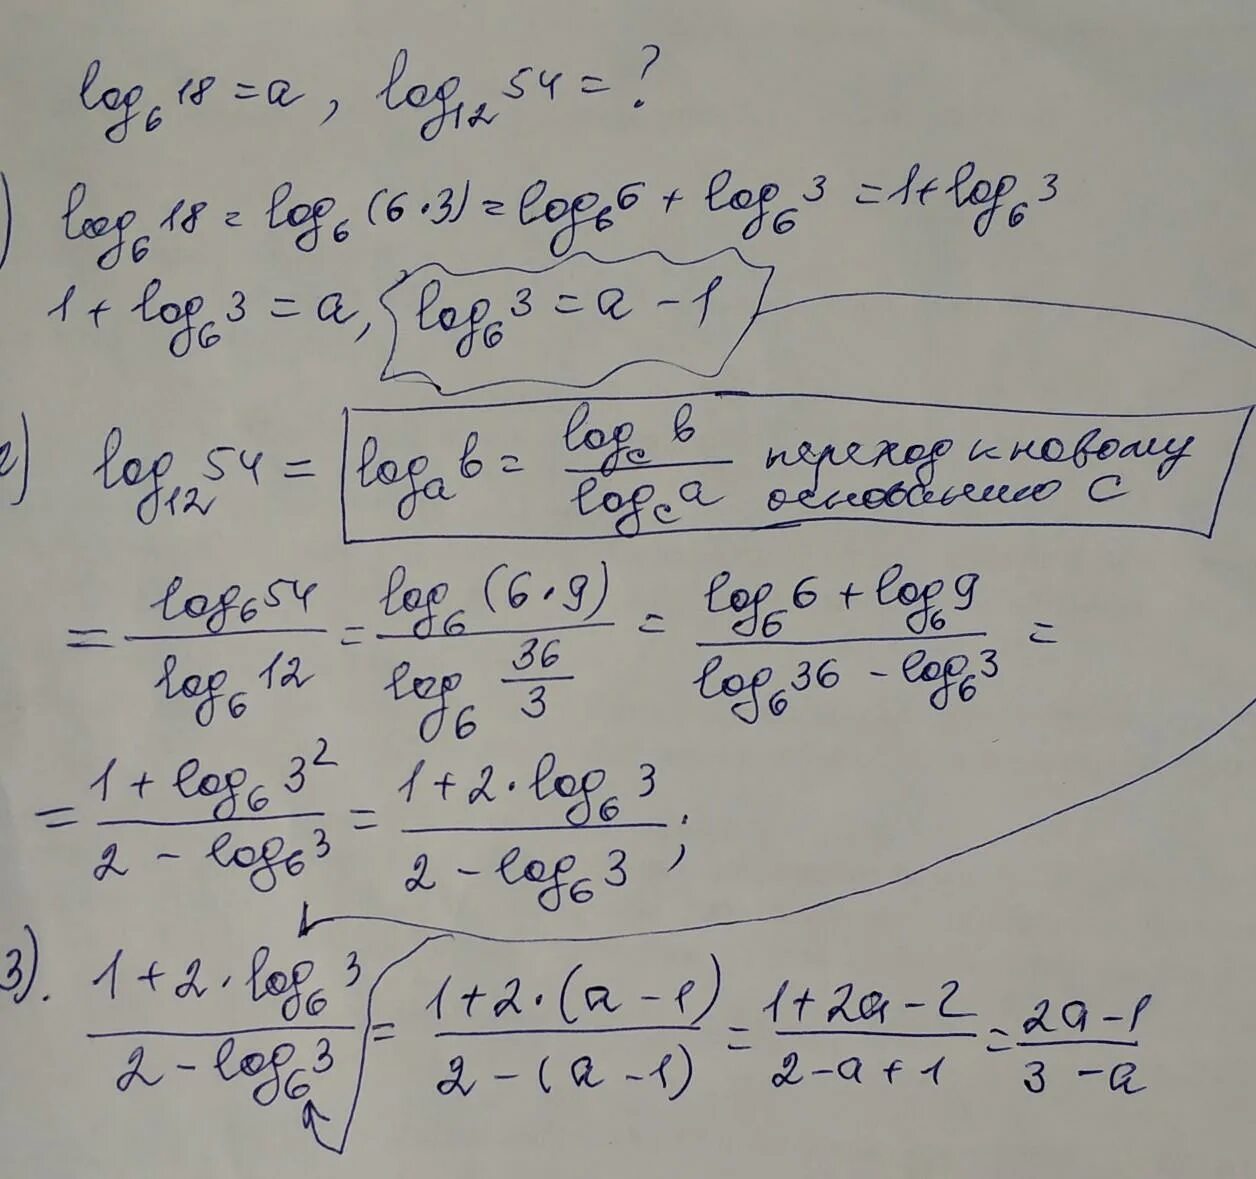 log₆18 = a, log₁₂54 = ?
) log₆18 = log₆(6·3) = log₆6 + log₆3 = 1 + log₆3
1 + log₆3 = a, log₆3 = a - 1
2) log₁₂54 = logₐb = log_c b / log_c a переход к новому основанию C
= log₆54 / log₆12 = log₆(6·9) / log₆(36/3) = (log₆6 + log₆9) / (log₆36 - log₆3) =
= (1 + log₆3²) / (2 - log₆3) = (1 + 2·log₆3) / (2 - log₆3);
3). (1 + 2·log₆3) / (2 - log₆3) = (1 + 2·(a - 1)) / (2 - (a - 1)) = (1 + 2a - 2) / (2 - a + 1) = (2a - 1) / (3 - a)